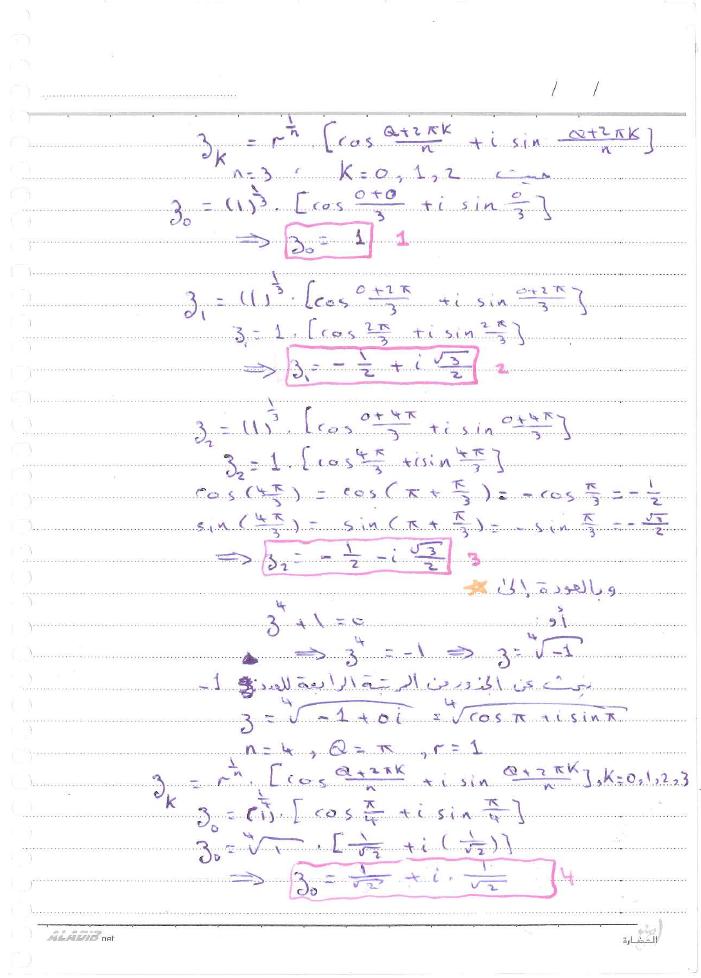 / /
z_K = r^{1/n} · [cos (Q+2πK)/n + i sin (Q+2πK)/n]
n=3 , K=0, 1, 2 حيث
z_0 = (1)^{1/3} · [cos (0+0)/3 + i sin 0/3]
⇒ z_0 = 1 1
z_1 = (1)^{1/3} · [cos (0+2π)/3 + i sin (0+2π)/3]
z_1 = 1 · [cos 2π/3 + i sin 2π/3]
⇒ z_1 = - 1/2 + i √3/2 2
z_2 = (1)^{1/3} · [cos (0+4π)/3 + i sin (0+4π)/3]
z_2 = 1 · [cos 4π/3 + i sin 4π/3]
cos(4π/3) = cos(π + π/3) = - cos π/3 = - 1/2
sin(4π/3) = sin(π + π/3) = - sin π/3 = - √3/2
⇒ z_2 = - 1/2 - i √3/2 3
وبالعودة إلى ☆
أو: z^4 + 1 = 0
⇒ z^4 = -1 ⇒ z = ⁴√(-1)
نبحث عن الجذور من الرتبة الرابعة للعدد -1
z = ⁴√(-1+0i) = ⁴√(cos π + i sin π)
n=4 , Q=π , r=1
z_K = r^{1/n} · [cos (Q+2πK)/n + i sin (Q+2πK)/n], K=0,1,2,3
z_0 = (1)^{1/4} · [cos π/4 + i sin π/4]
z_0 = ⁴√1 · [1/√2 + i (1/√2)]
⇒ z_0 = 1/√2 + i · 1/√2 4
ALADIB net
الحضارة